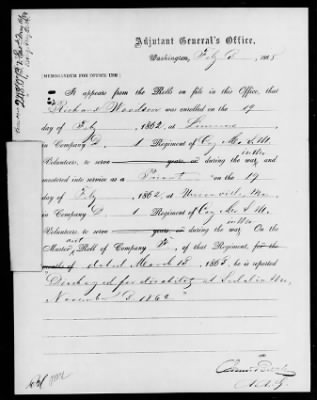 Adjutant General's Office,
Washington, Feby 3, 1868
(MEMORANDUM FOR OFFICE USE.)
It appears from the Rolls on file in this Office, that
Richard Woodson was enrolled on the 19
day of Feby, 1862, at
in Company D. 1 Regiment of Cav Mo S. M.
Volunteers, to serve years or during the war, and
mustered into service as a Private on the 19
day of Feby, 1862, at Unionville Mo
in Company D. 1 Regiment of Cav Mo S. M.
Volunteers, to serve years or during the war. On the
Muster out Roll of Company of that Regiment, for the
months of dated March 18, 1865, he is reported
Discharged for disability at Sedalia Mo,
November 3 1862"
A.A.G.